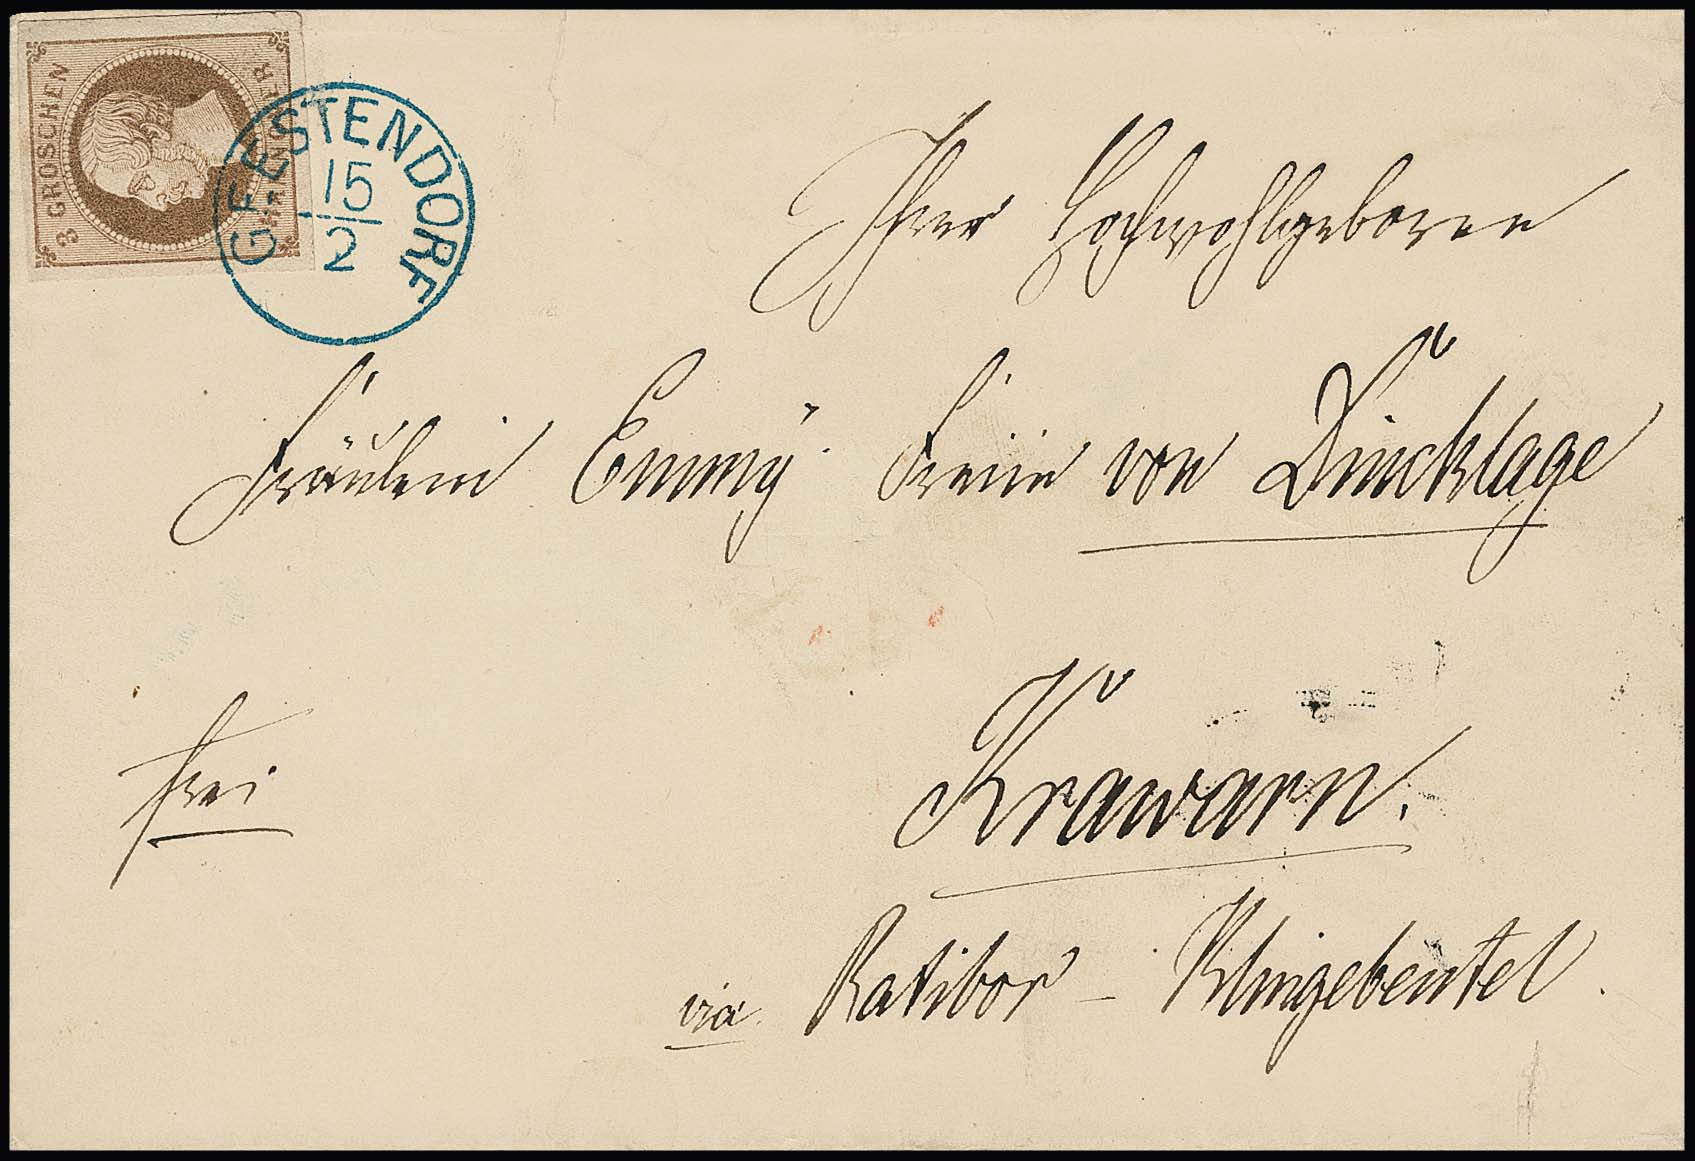 3 GROSCHEN
HANNOVER
GEESTENDORF
15
2
Ihrer Hochwohlgeboren
Fräulein Emmy Freiin von Dincklage
frei
Krawarn.
via Ratibor - Klingebeutel.